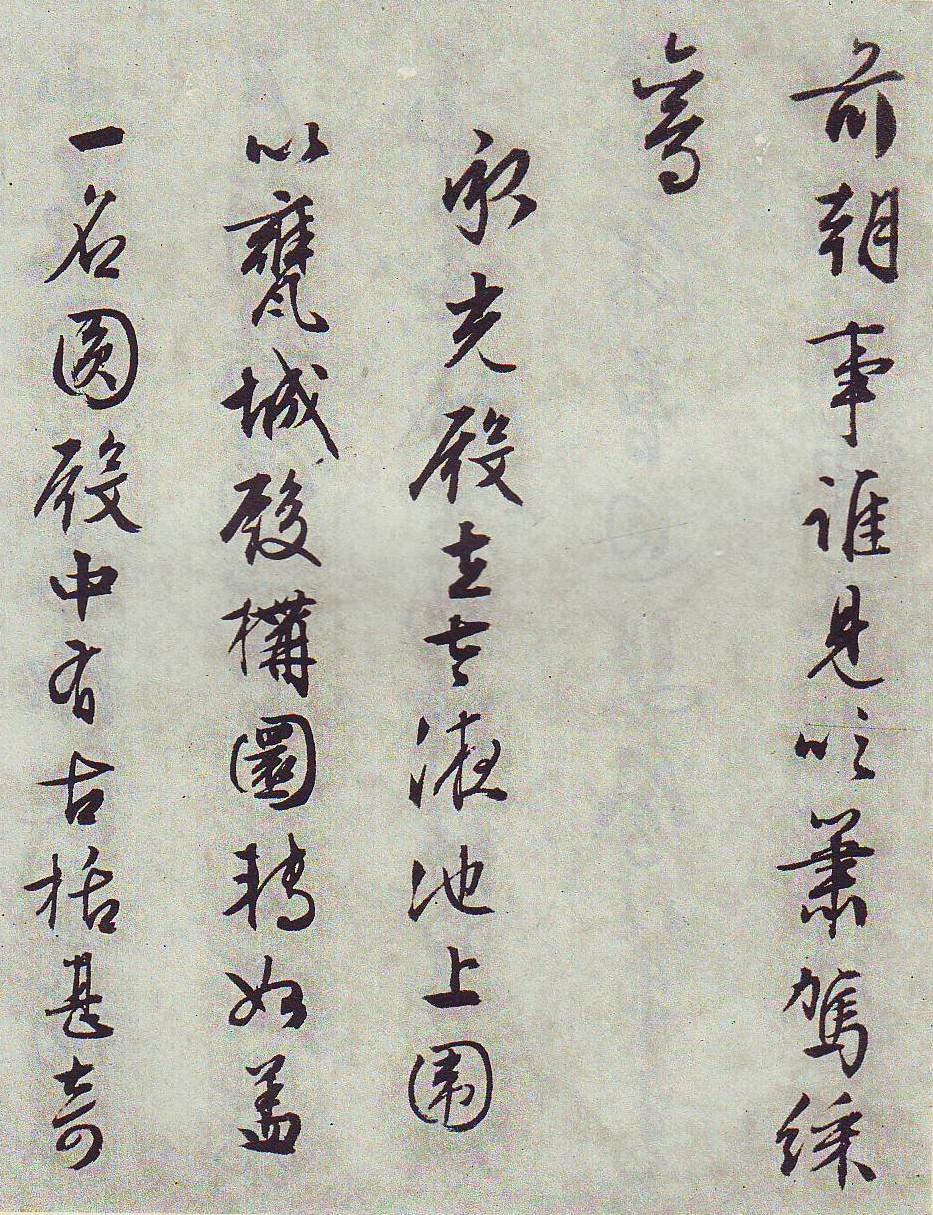 前朝事誰見吹簫駕綵
鸞
承光殿在太液池上圍
以甕城殿構圜轉如盖
一名圓殿中有古栝甚奇